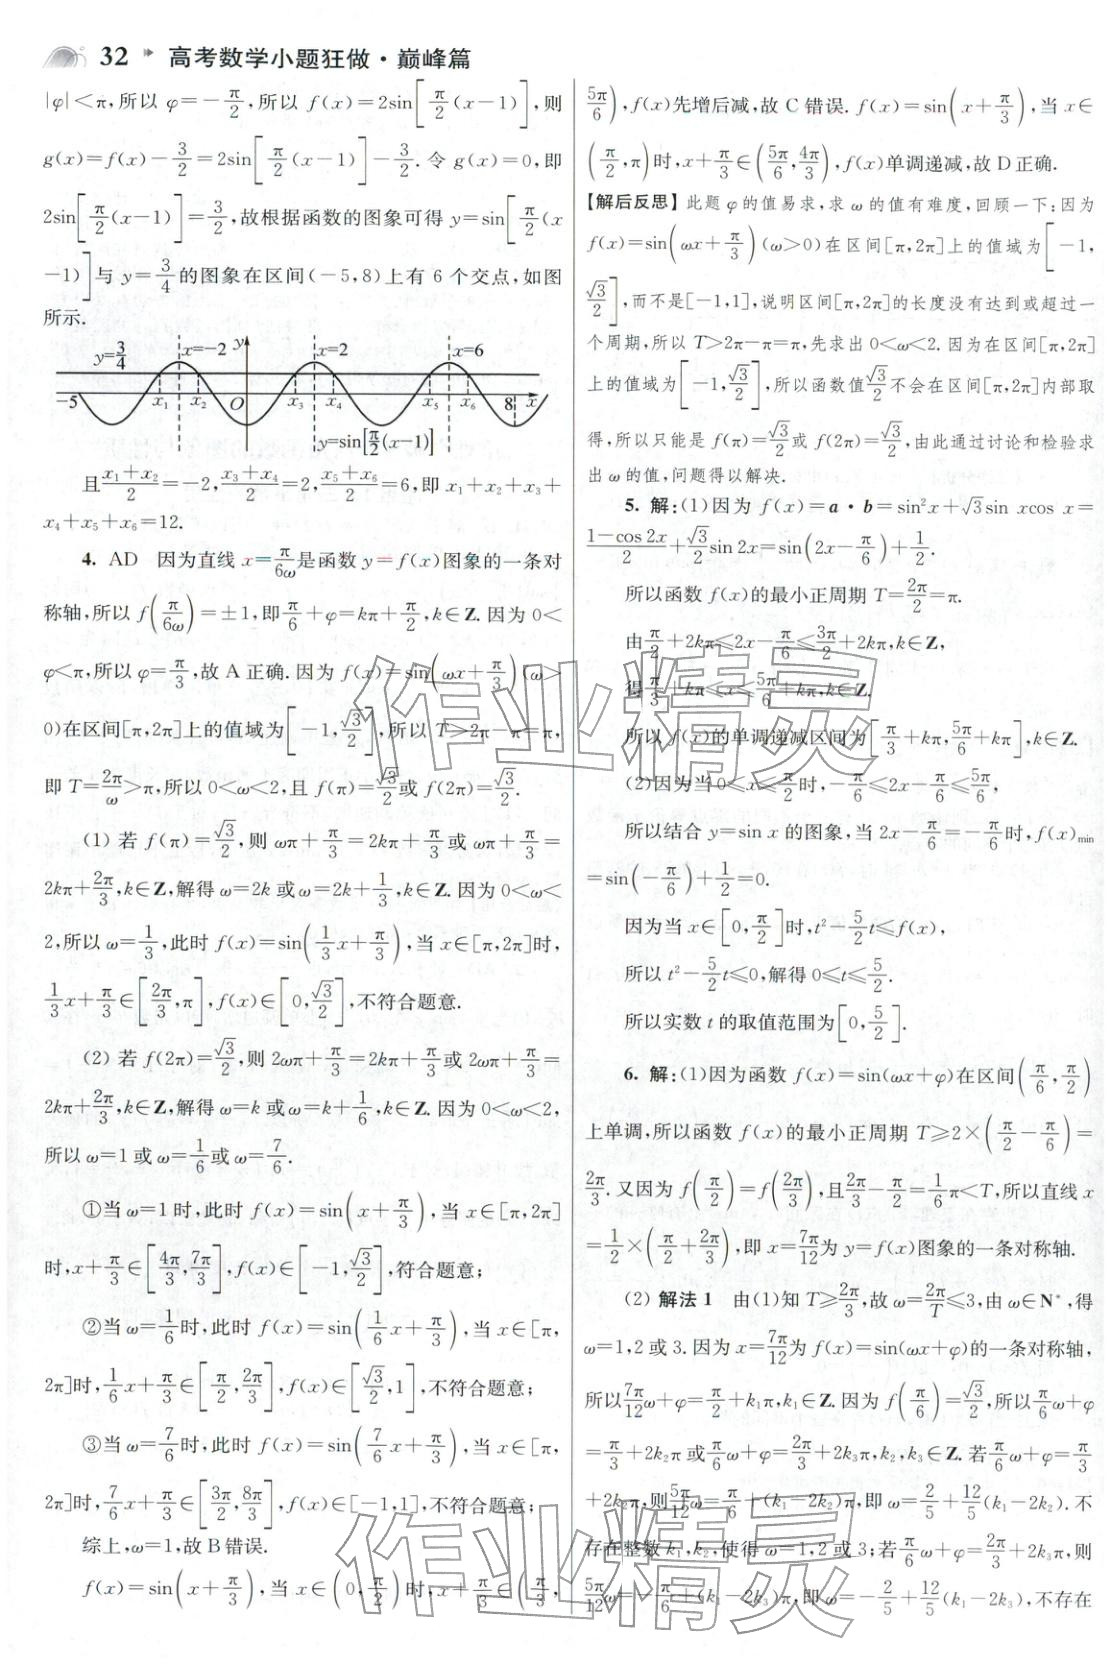 32 高考数学小题狂做·巅峰篇
|φ|<π,所以 φ=-π/2,所以 f(x)=2sin[π/2(x-1)],则
g(x)=f(x)-3/2=2sin[π/2(x-1)]-3/2.令 g(x)=0,即
2sin[π/2(x-1)]=3/2,故根据函数的图象可得 y=sin[π/2(x
-1)]与 y=3/4的图象在区间(-5,8)上有 6 个交点,如图
所示.
y=3/4 x=-2 y x=2 x=6
-5 x₁ x₂ O x₃ x₄ x₅ x₆ 8 x
y=sin[π/2(x-1)]
且(x₁+x₂)/2=-2,(x₃+x₄)/2=2,(x₅+x₆)/2=6,即 x₁+x₂+x₃+
x₄+x₅+x₆=12.
4. AD 因为直线 x=π/6ω是函数 y=f(x)图象的一条对
称轴,所以 f(π/6ω)=±1,即π/6+φ=kπ+π/2,k∈Z.因为 0<
φ<π,所以 φ=π/3,故 A 正确.因为 f(x)=sin(ωx+π/3)(ω>
0)在区间[π,2π]上的值域为[-1,√3/2],所以 T>2π-π=π,
即 T=2π/ω>π,所以 0<ω<2,且 f(π)=√3/2或 f(2π)=√3/2.
(1) 若 f(π)=√3/2,则 ωπ+π/3=2kπ+π/3或 ωπ+π/3=
2kπ+2π/3,k∈Z,解得 ω=2k 或 ω=2k+1/3,k∈Z.因为 0<ω<
2,所以 ω=1/3,此时 f(x)=sin(1/3x+π/3),当 x∈[π,2π]时,
1/3x+π/3∈[2π/3,π],f(x)∈[0,√3/2],不符合题意.
(2) 若 f(2π)=√3/2,则 2ωπ+π/3=2kπ+π/3或 2ωπ+π/3=
2kπ+2π/3,k∈Z,解得 ω=k 或 ω=k+1/6,k∈Z.因为 0<ω<2,
所以 ω=1 或 ω=1/6或 ω=7/6.
①当 ω=1 时,此时 f(x)=sin(x+π/3),当 x∈[π,2π]
时,x+π/3∈[4π/3,7π/3],f(x)∈[-1,√3/2],符合题意;
②当 ω=1/6时,此时 f(x)=sin(1/6x+π/3),当 x∈[π,
2π]时,1/6x+π/3∈[π/2,2π/3],f(x)∈[√3/2,1],不符合题意;
③当 ω=7/6时,此时 f(x)=sin(7/6x+π/3),当 x∈[π,
2π]时,7/6x+π/3∈[3π/2,8π/3],f(x)∈[-1,1],不符合题意;
综上,ω=1,故 B 错误.
f(x)=sin(x+π/3),当 x∈(0,π/2)时,x+π/3∈(π/3,
5π/6),f(x)先增后减,故 C 错误.f(x)=sin(x+π/3),当 x∈
(π/2,π)时,x+π/3∈(5π/6,4π/3),f(x)单调递减,故 D 正确.
【解后反思】此题 φ 的值易求,求 ω 的值有难度,回顾一下:因为
f(x)=sin(ωx+π/3)(ω>0)在区间[π,2π]上的值域为[-1,
√3/2],而不是[-1,1],说明区间[π,2π]的长度没有达到或超过一
个周期,所以 T>2π-π=π,先求出 0<ω<2.因为在区间[π,2π]
上的值域为[-1,√3/2],所以函数值√3/2不会在区间[π,2π]内部取
得,所以只能是 f(π)=√3/2或 f(2π)=√3/2,由此通过讨论和检验求
出 ω 的值,问题得以解决.
5. 解:(1)因为 f(x)=a·b=sin²x+√3sin xcos x=
(1-cos 2x)/2+√3/2sin 2x=sin(2x-π/6)+1/2.
所以函数 f(x)的最小正周期 T=2π/2=π.
由π/2+2kπ≤2x-π/6≤3π/2+2kπ,k∈Z,
得π/3+kπ≤x≤5π/6+kπ,k∈Z.
所以 f(x)的单调递减区间为[π/3+kπ,5π/6+kπ],k∈Z.
(2)因为当 0≤x≤π/2时,-π/6≤2x-π/6≤5π/6,
所以结合 y=sin x 的图象,当 2x-π/6=-π/6时,f(x)min
=sin(-π/6)+1/2=0.
因为当 x∈[0,π/2]时,t²-5/2t≤f(x),
所以 t²-5/2t≤0,解得 0≤t≤5/2.
所以实数 t 的取值范围为[0,5/2].
6. 解:(1)因为函数 f(x)=sin(ωx+φ)在区间(π/6,π/2)
上单调,所以函数 f(x)的最小正周期 T≥2×(π/2-π/6)=
2π/3.又因为 f(π/2)=f(2π/3),且2π/3-π/2=1/6π<T,所以直线 x
=1/2×(π/2+2π/3),即 x=7π/12为 y=f(x)图象的一条对称轴.
(2) 解法 1 由(1)知 T≥2π/3,故 ω=2π/T≤3,由 ω∈N*,得
ω=1,2 或 3.因为 x=7π/12为 f(x)=sin(ωx+φ)的一条对称轴,
所以7π/12ω+φ=π/2+k₁π,k₁∈Z.因为 f(π/6)=√3/2,所以π/6ω+φ
=π/3+2k₂π 或π/6ω+φ=2π/3+2k₃π,k₂,k₃∈Z.若π/6ω+φ=π/3
+2k₂π,则5π/12ω=π/6+(k₁-2k₂)π,即 ω=2/5+12/5(k₁-2k₂).不
存在整数 k₁,k₂,使得 ω=1,2 或 3;若π/6ω+φ=2π/3+2k₃π,则
5π/12ω=-π/6+(k₁-2k₃)π,即 ω=-2/5+12/5(k₁-2k₃),不存在
作业精灵
作业精灵